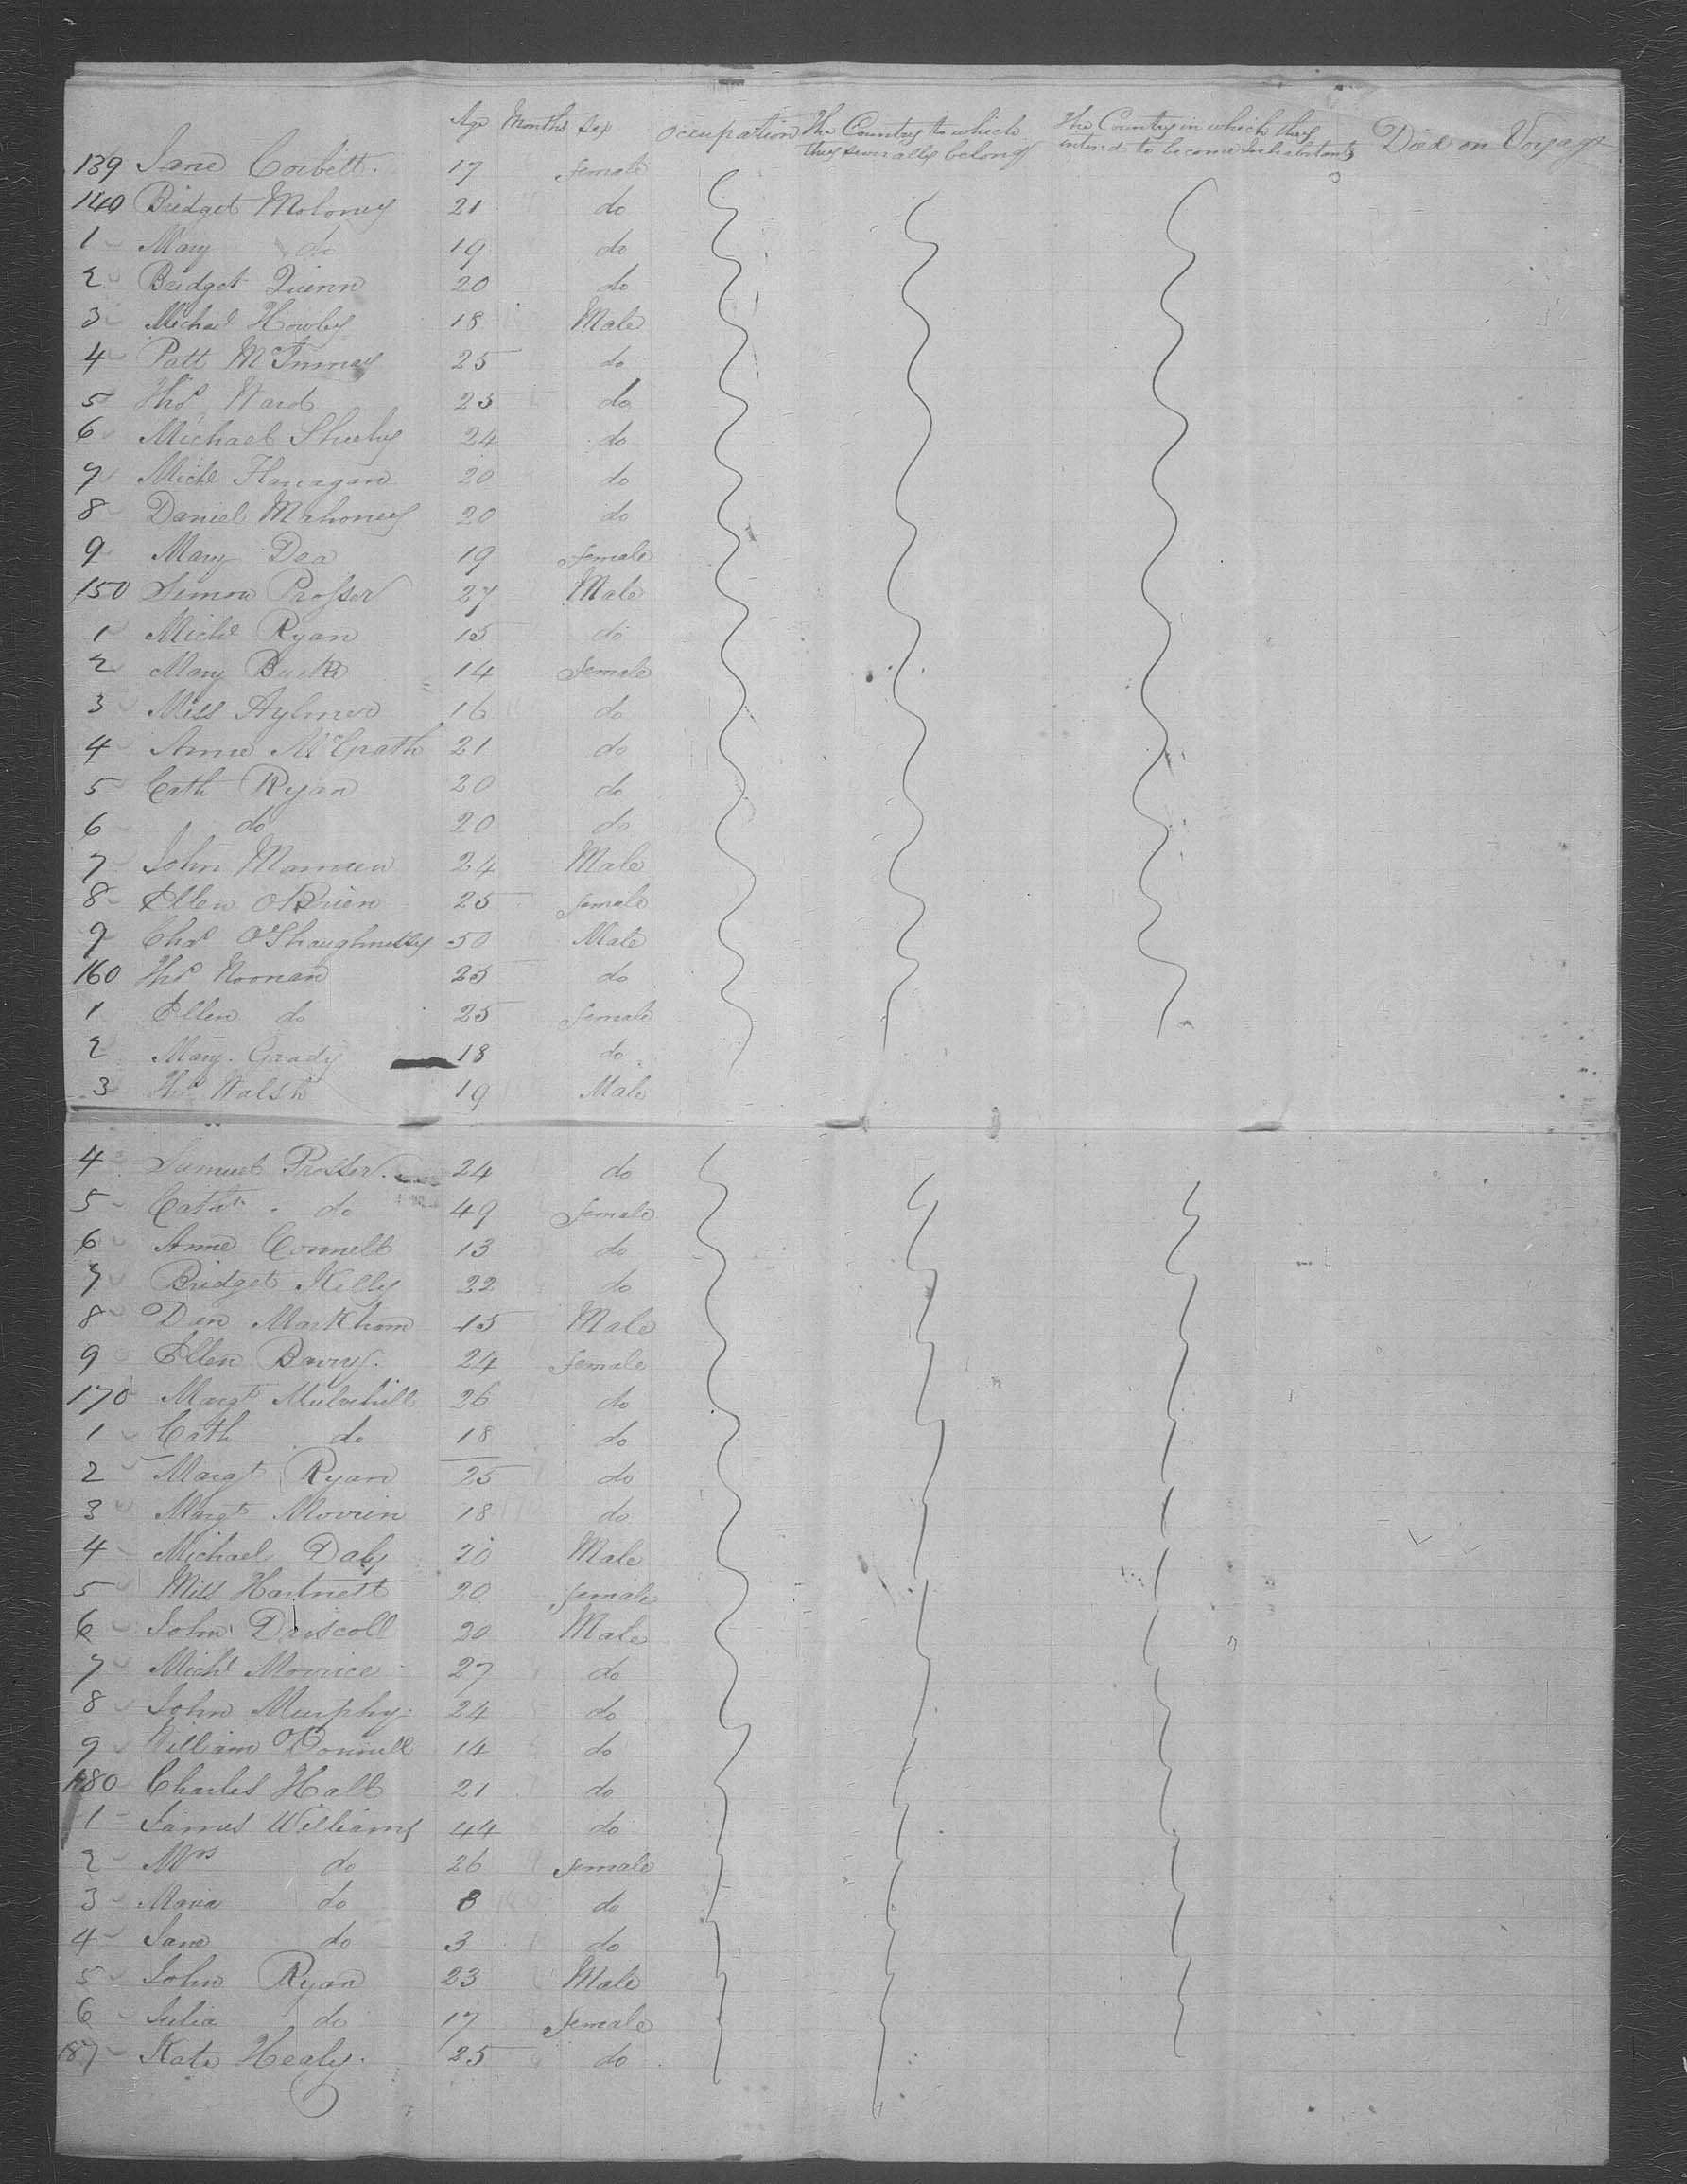 Age Months Sex Occupation The Country to which they severally belong The Country in which they intend to become Inhabitants Died on Voyage
139 Jane Corbett. 17 female
140 Bridget Moloney 21 do
1 Mary do 19 do
2 Bridget Quinn 20 do
3 Michael Howley 18 Male
4 Patt 25 do
5 Thos Ward 25 do
6 Michael Sheehy 24 do
7 Michl Flanagan 20 do
8 Daniel Mahoney 20 do
9 Mary Dea 19 female
150 Simon Prosser 27 Male
1 Michl Ryan 15 do
2 Mary Burke 14 female
3 Miss Aylmer 16 do
4 Anne McGrath 21 do
5 Cath Ryan 20 do
6 do 20 do
7 John 24 Male
8 Ellen OBrien 25 female
9 Chas O'Shaughnessy 50 Male
160 Thos Noonan 25 do
1 Ellen do 25 female
2 Mary Grady 18 do
3 Thos Walsh 19 Male
4 Samuel Prosser. 24 do
5 do 49 female
6 Anne Connell 13 do
7 Bridget Kelly 22 do
8 Dan Markham 15 Male
9 Ellen Barry. 24 female
170 Margt Mulvihill 26 do
1 Cath do 18 do
2 Margt Ryan 25 do
3 Margt 18 do
4 Michael Daly 20 Male
5 Miss Hartnett 20 female
6 John Driscoll 20 Male
7 Michl 27 do
8 John Murphy 24 do
9 William 14 do
180 Charles Hall 21 do
1 James Williams 44 do
2 Mrs do 26 female
3 Maria do 8 do
4 Jane do 3 do
5 John Ryan 23 Male
6 Julia do 17 female
187 Kate Healy. 25 do